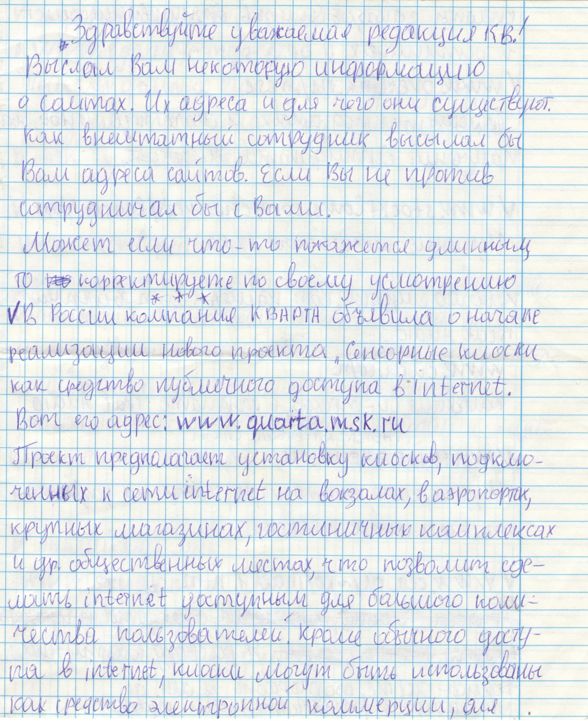 „Здравствуйте уважаемая редакция КВ!
Выслал Вам некоторую информацию
о сайтах. Их адреса и для чего они существуют.
Как внештатный сотрудник высылал бы
Вам адреса сайтов. Если Вы не против
сотрудничал бы с Вами.
Может если что-то покажется длинным
то корректируете по своему усмотрению
* * *
√ В России компания КВАРТА объявила о начале
реализации нового проекта „Сенсорные киоски
как средство публичного доступа в internet.
Вот его адрес: www.quarta.msk.ru
Проект предполагает установку киосков, подклю-
ченных к сети internet на вокзалах, в аэропортах,
крупных магазинах, гостиничных комплексах
и др. общественных местах, что позволит сде-
лать internet доступным для большого коли-
чества пользователей. Кроме обычного досту-
па в internet, киоски могут быть использованы
как средство электронной коммерции, для